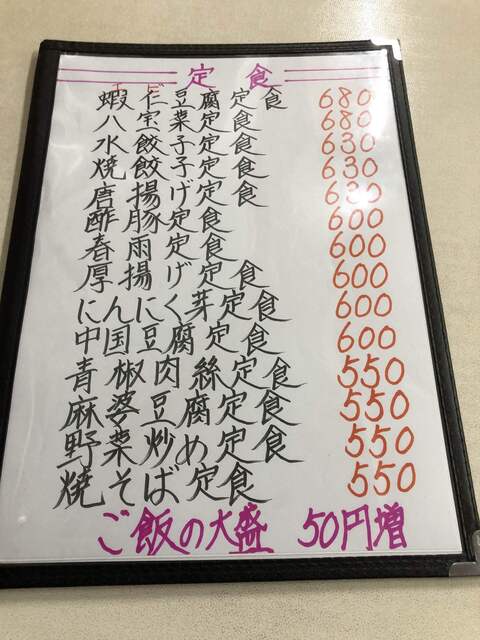 定食
蝦仁豆腐定食 680
八宝菜定食 680
水餃子定食 630
焼餃子定食 630
唐揚げ定食 630
酢豚定食 600
春雨定食 600
厚揚げ定食 600
にんにく芽定食 600
中国豆腐定食 600
青椒肉絲定食 550
麻婆豆腐定食 550
野菜炒め定食 550
焼そば定食 550
ご飯の大盛 50円増